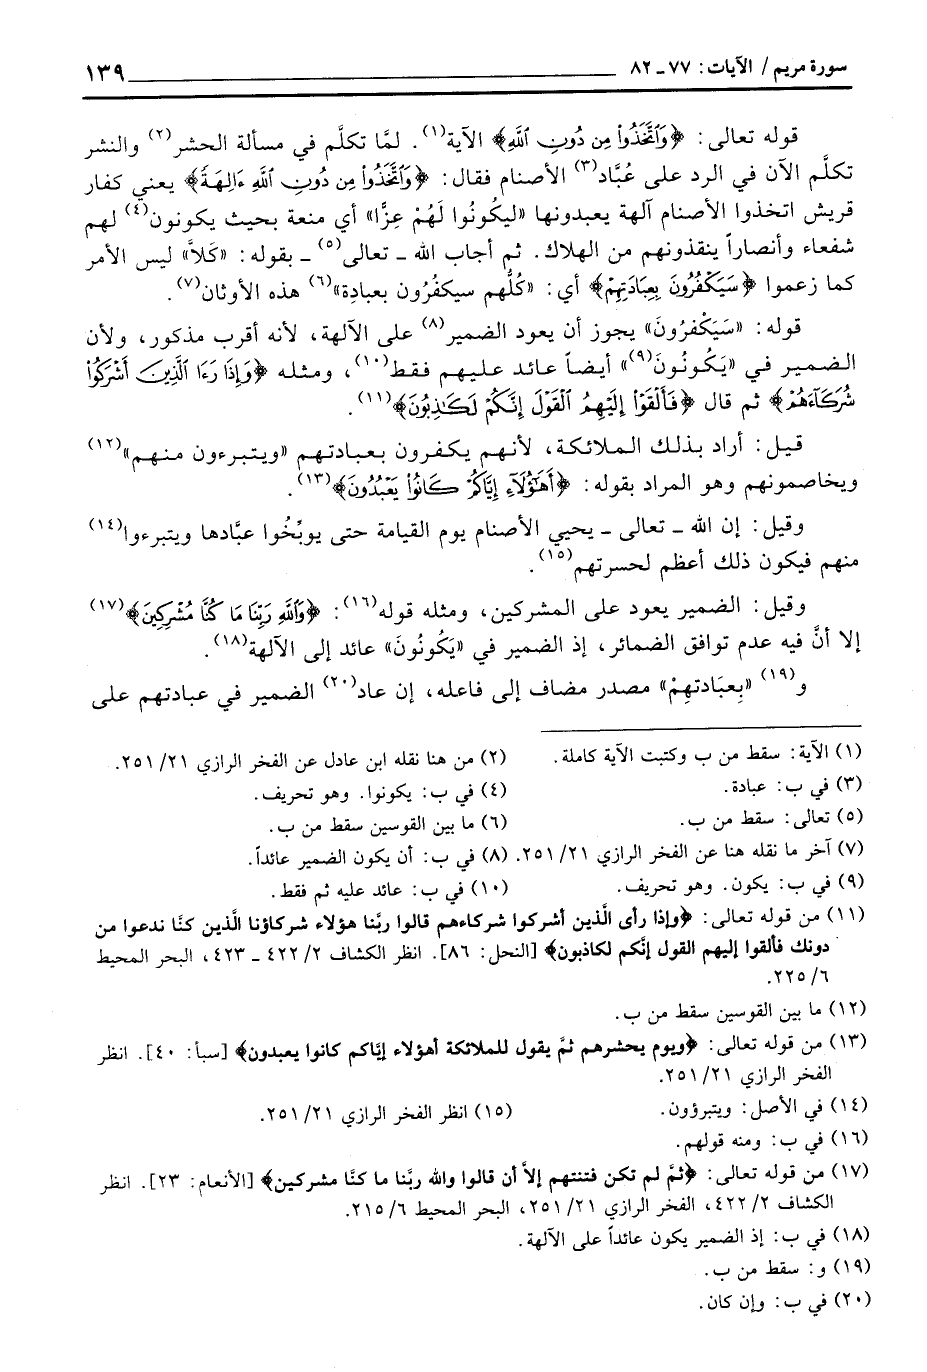 سورة مريم / الآيات : ٧٧ ـ ٨٢ ١٣٩
قوله تعالى : ﴿وَٱتَّخَذُواْ مِن دُونِ ٱللَّهِ﴾ الآية(١) . لمَّا تكلَّم في مسألة الحشر(٢) والنشر
تكلَّم الآن في الرد على عُبَّاد(٣) الأصنام فقال : ﴿وَٱتَّخَذُواْ مِن دُونِ ٱللَّهِ ءَالِهَةً﴾ يعني كفار
قريش اتخذوا الأصنام آلهة يعبدونها «ليكُونُوا لَهُمْ عِزًّا» أي منعة بحيث يكونون(٤) لهم
شفعاء وأنصاراً ينقذونهم من الهلاك . ثم أجاب الله ـ تعالى(٥) ـ بقوله : «كَلاَّ» ليس الأمر
كما زعموا ﴿سَيَكْفُرُونَ بِعِبَادَتِهِمْ﴾ أي : «كُلُّهم سيكفُرون بعبادِة»(٦) هذه الأوثان(٧) .
قوله : «سَيَكْفرُونَ» يجوز أن يعود الضمير(٨) على الآلهة ، لأنه أقرب مذكور ، ولأن
الضمير في «يَكُونُونَ(٩)» أيضاً عائد عليهم فقط(١٠) ، ومثله ﴿وَإِذَا رَءَا ٱلَّذِينَ أَشْرَكُواْ
شُرَكَآءَهُمْ﴾ ثم قال ﴿فَأَلْقَوْا إِلَيْهِمُ ٱلْقَوْلَ إِنَّكُمْ لَكَٰذِبُونَ﴾(١١) .
قيل : أراد بذلك الملائكة ، لأنهم يكفرون بعبادتهم «ويتبرءون منهم»(١٢)
ويخاصمونهم وهو المراد بقوله : ﴿أَهَٰٓؤُلَآءِ إِيَّاكُمْ كَانُواْ يَعْبُدُونَ﴾(١٣) .
وقيل : إن الله ـ تعالى ـ يحيي الأصنام يوم القيامة حتى يوبِّخُوا عبَّادها ويتبرءوا(١٤)
منهم فيكون ذلك أعظم لحسرتهم(١٥) .
وقيل : الضمير يعود على المشركين ، ومثله قوله(١٦) : ﴿وَٱللَّهِ رَبِّنَا مَا كُنَّا مُشْرِكِينَ﴾(١٧)
إلا أنَّ فيه عدم توافق الضمائر ، إذ الضمير في «يَكُونُونَ» عائد إلى الآلهة(١٨) .
و(١٩) «بِعبَادتهِمْ» مصدر مضاف إلى فاعله ، إن عاد(٢٠) الضمير في عبادتهم على
(١) الآية : سقط من ب وكتبت الآية كاملة . (٢) من هنا نقله ابن عادل عن الفخر الرازي ٢١/ ٢٥١ .
(٣) في ب : عبادة . (٤) في ب : يكونوا . وهو تحريف .
(٥) تعالى : سقط من ب . (٦) ما بين القوسين سقط من ب .
(٧) آخر ما نقله هنا عن الفخر الرازي ٢١/ ٢٥١ . (٨) في ب : أن يكون الضمير عائداً .
(٩) في ب : يكون . وهو تحريف . (١٠) في ب : عائد عليه ثم فقط .
(١١) من قوله تعالى : ﴿وإذا رأى الَّذين أشركوا شركاءهم قالوا ربَّنا هؤلاء شركاؤنا الَّذين كنَّا ندعوا من
دونك فألقوا إليهم القول إنَّكم لكاذبون﴾ [النحل : ٨٦] . انظر الكشاف ٢/ ٤٢٢ ـ ٤٢٣ ، البحر المحيط
٦/ ٢٢٥ .
(١٢) ما بين القوسين سقط من ب .
(١٣) من قوله تعالى : ﴿ويوم يحشرهم ثمَّ يقول للملائكة أهؤلاء إيَّاكم كانوا يعبدون﴾ [سبأ : ٤٠] . انظر
الفخر الرازي ٢١/ ٢٥١ .
(١٤) في الأصل : ويتبرؤون . (١٥) انظر الفخر الرازي ٢١/ ٢٥١ .
(١٦) في ب : ومنه قولهم .
(١٧) من قوله تعالى : ﴿ثمَّ لم تكن فتنتهم إلاَّ أن قالوا والله ربَّنا ما كنَّا مشركين﴾ [الأنعام : ٢٣] . انظر
الكشاف ٢/ ٤٢٢ ، الفخر الرازي ٢١/ ٢٥١ ، البحر المحيط ٦/ ٢١٥ .
(١٨) في ب : إذ الضمير يكون عائداً على الآلهة .
(١٩) و : سقط من ب .
(٢٠) في ب : وإن كان .